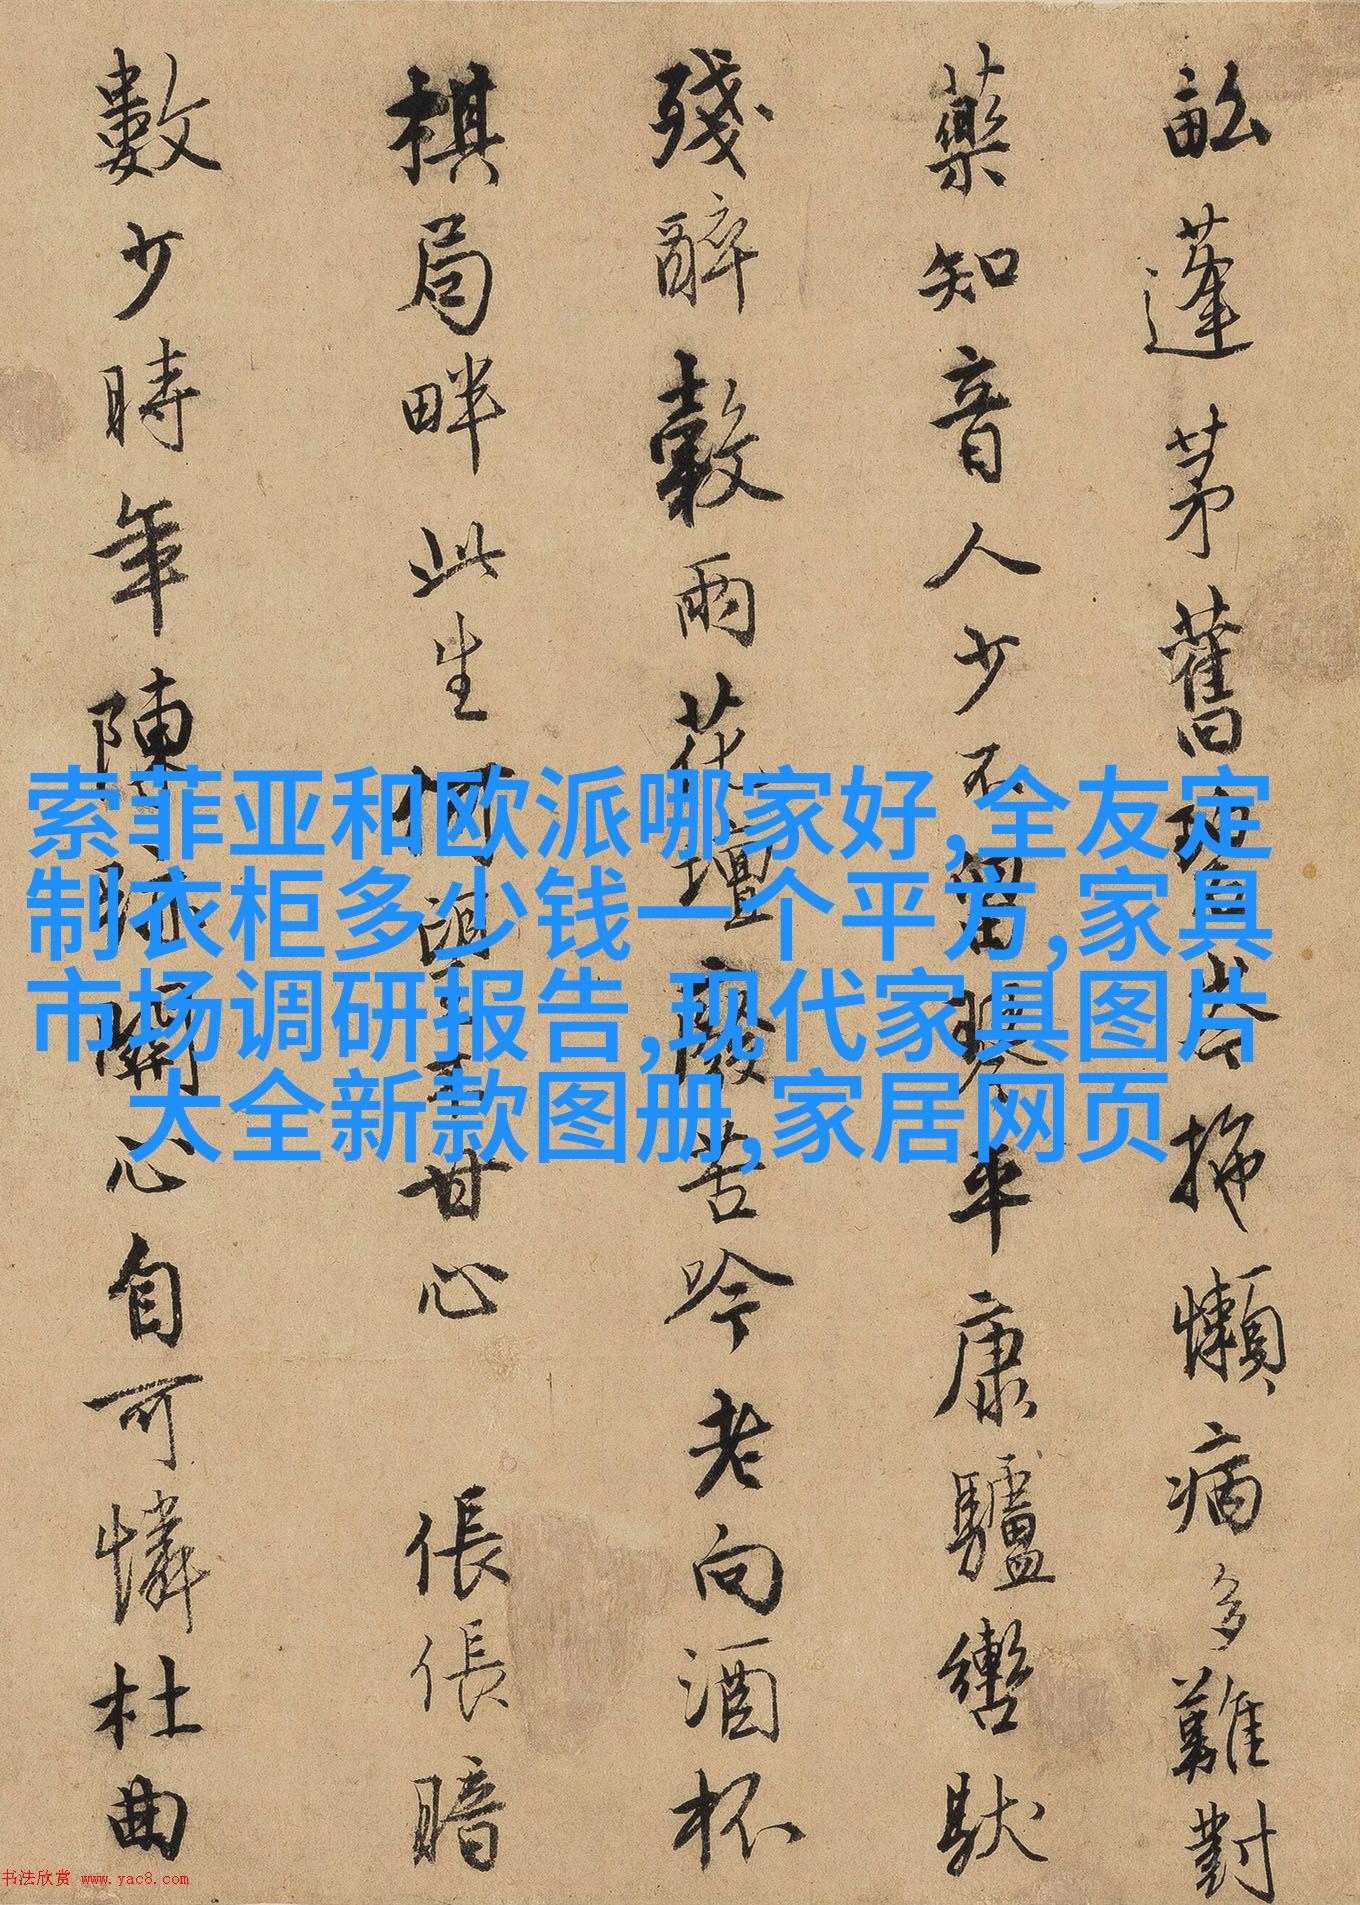 畝蓬茅舊拖懶病多難對
藥知音人少不留琴平康驢轡馱
殘醉縠雨花壇廢苦吟老向酒杯
棋局畔此生何限事甘心 倀倀暗
數少時年陳跡關心自可憐杜曲
索菲亚和欧派哪家好,全友定
制衣柜多少钱一个平方,家具
市场调研报告,现代家具图片
大全新款图册,家居网页
书法欣赏 www.yac8.com